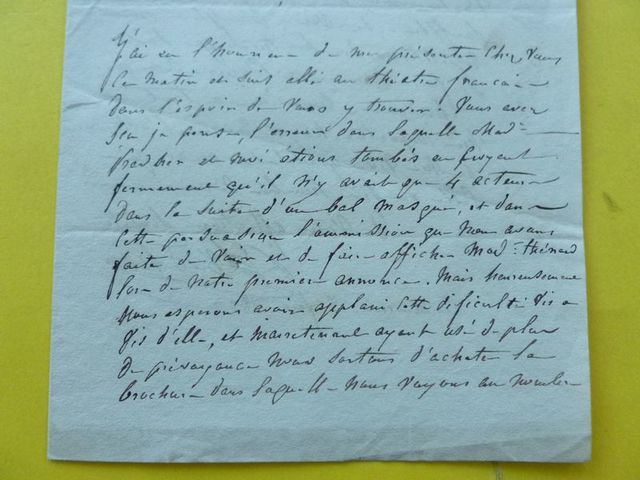 J'ai eu l'honneur de me présenter chez vous
ce matin et suis allé au théâtre français
dans l'espoir de vous y trouver. Vous avez
su je pense, l'erreur dans laquelle Mad.e
Pradher et moi étions tombés en croyant
fermement qu'il n'y avait que 4 acteurs
dans la suite d'un bal masqué, et dans
cette persuasion l'ommission que nous avons
faite de voir et de faire afficher Mad.e thénard
lors de notre première annonce. Mais heureusement
nous esperons avoir applani cette dificulté vis a
vis d'elle, et maintenant ayant usé de plus
de prévoyance nous sortons d'acheter la
brochure dans laquelle nous voyons au nombre